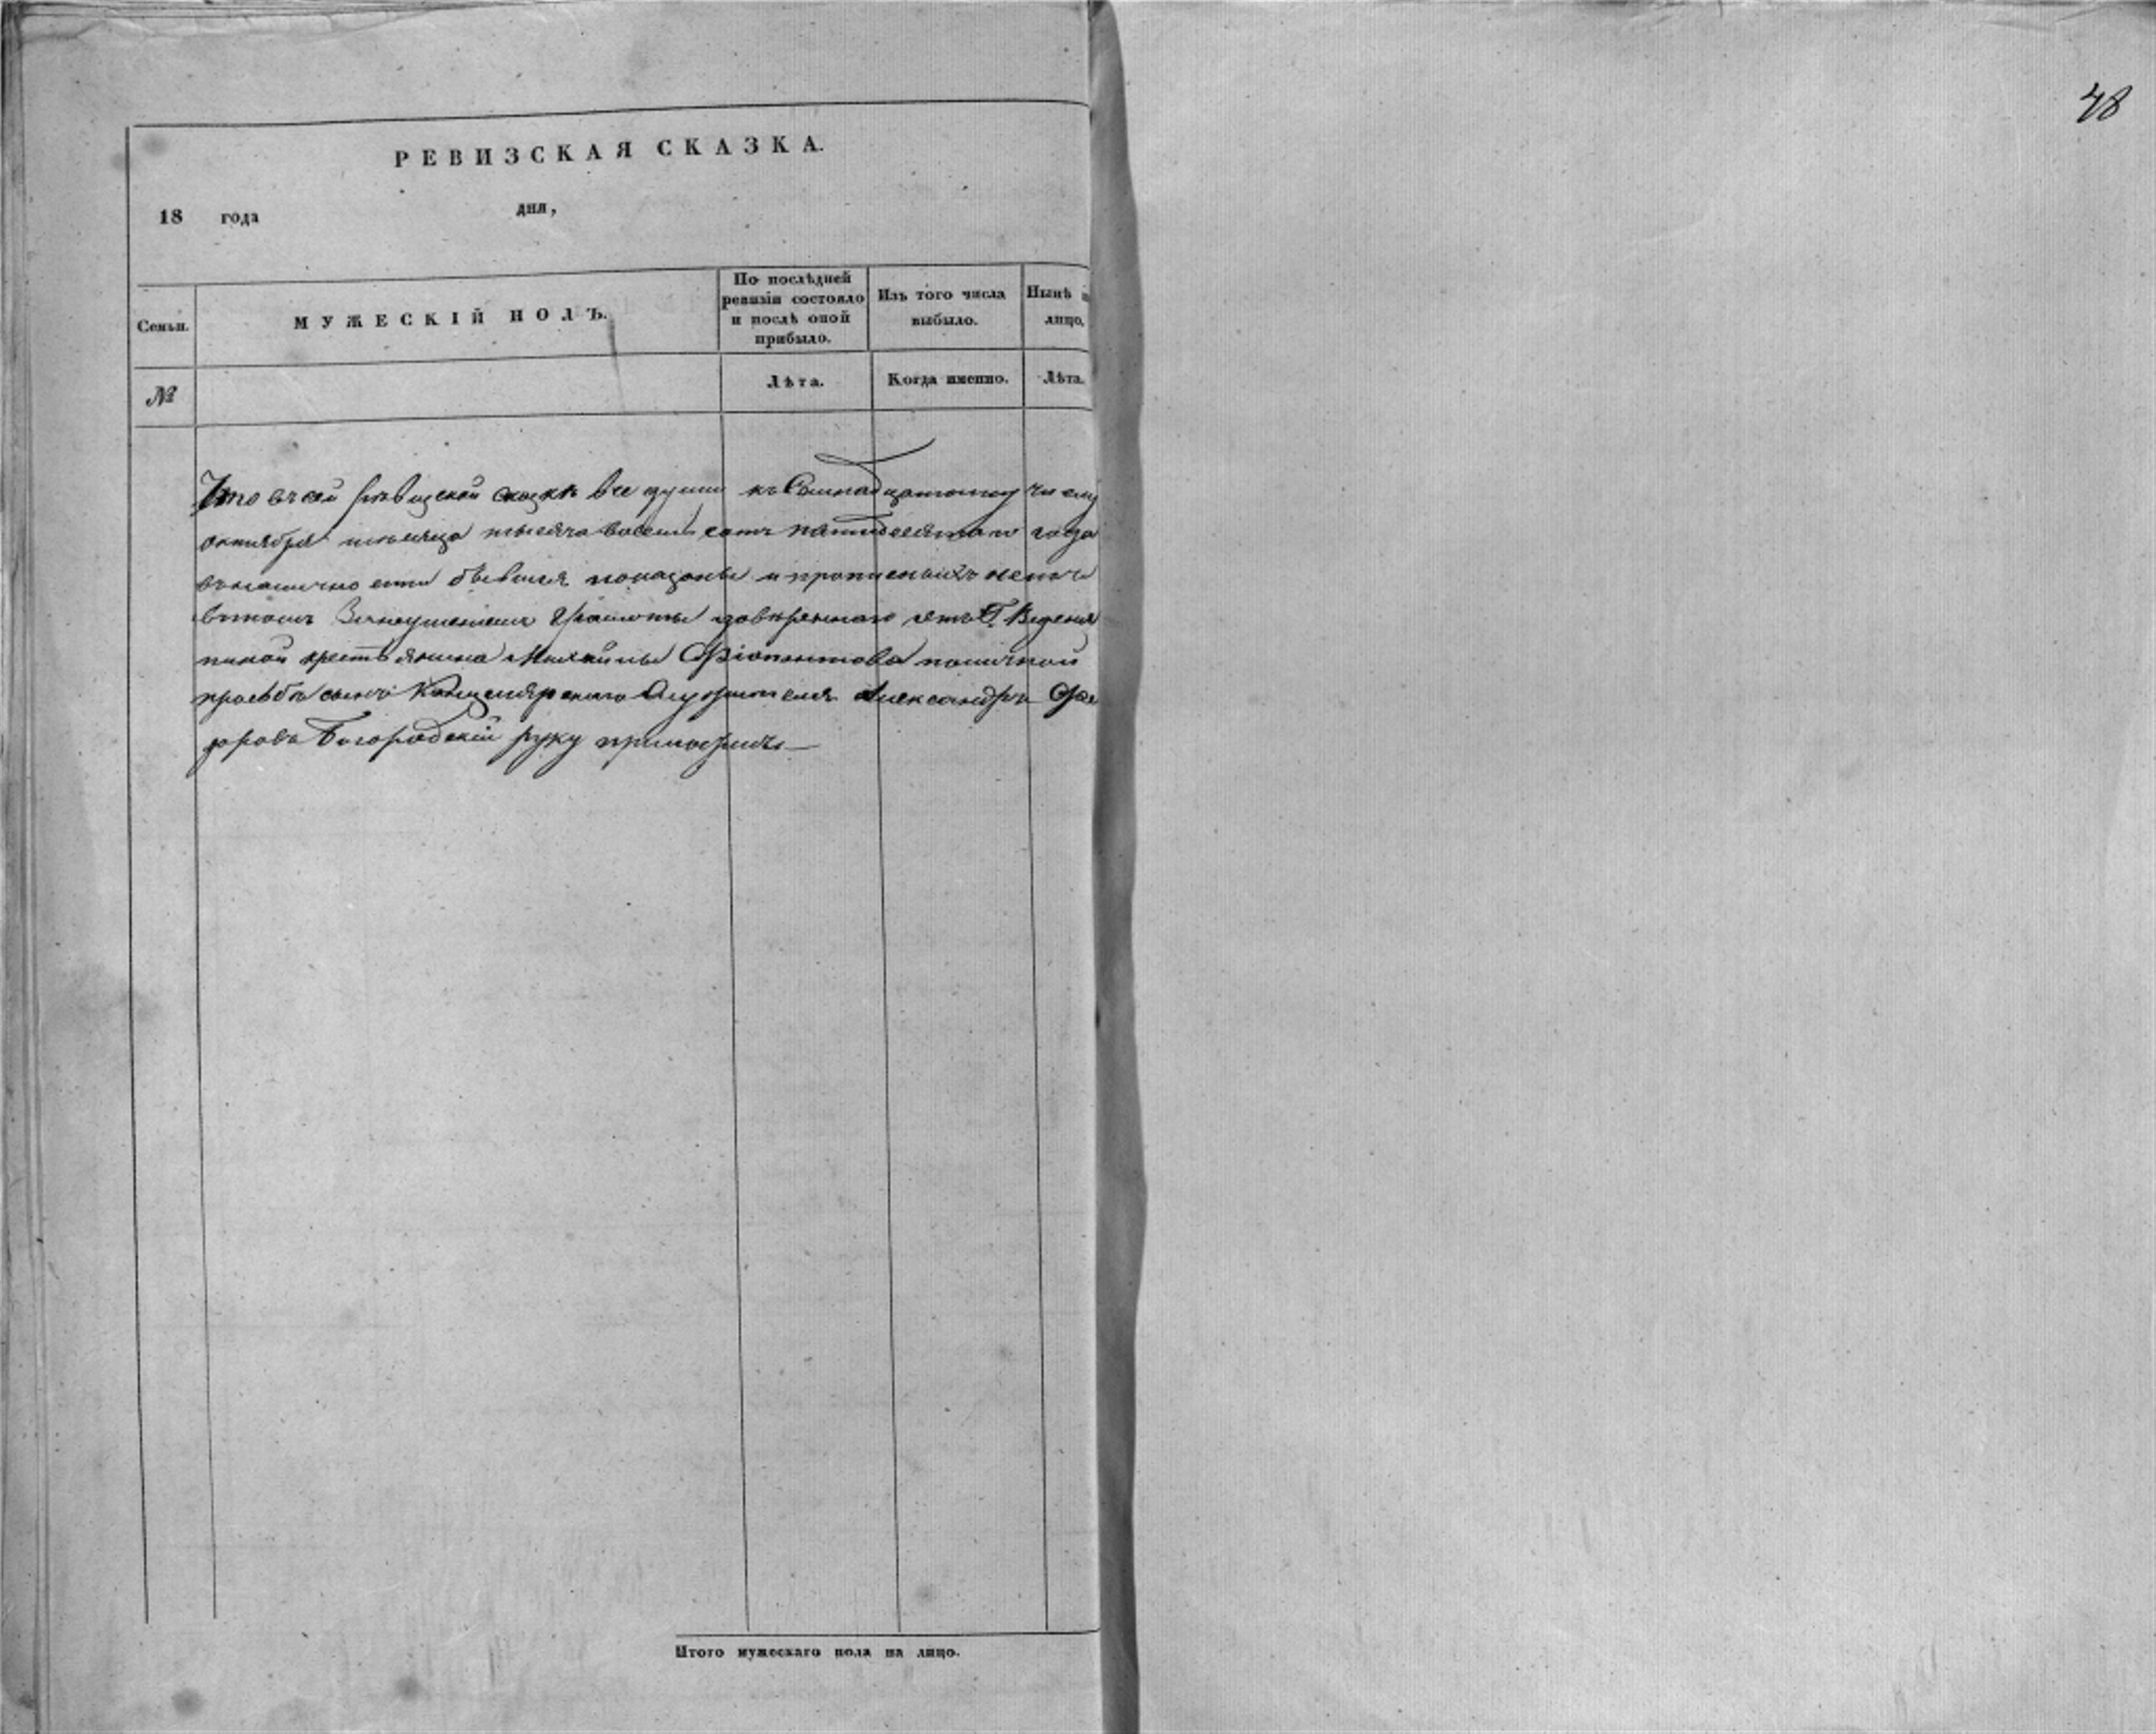 48
РЕВИЗСКАЯ СКАЗКА.
18 года дня,
Семьи.
МУЖЕСКІЙ ПОЛЪ.
По послѣдней ревизіи состояло и послѣ оной прибыло.
Изъ того числа выбыло.
Нынѣ лицо,
№
Лѣта.
Когда именно.
Лѣта.
Что въ сей ревизской сказкѣ все души къ числу
октября месяца тысяча восемь сотъ пятидесятаго года
въ наличности бывшія показаны и прописныхъ нетъ
въ томъ грамоты довѣреннаго отъ Г.
крестьянина Михайлы прозбѣ
прозьбѣ сынъ Канцелярскаго Служителя Александръ Фе
доровъ Богородскій руку приложилъ
Итого мужескаго пола на лицо.